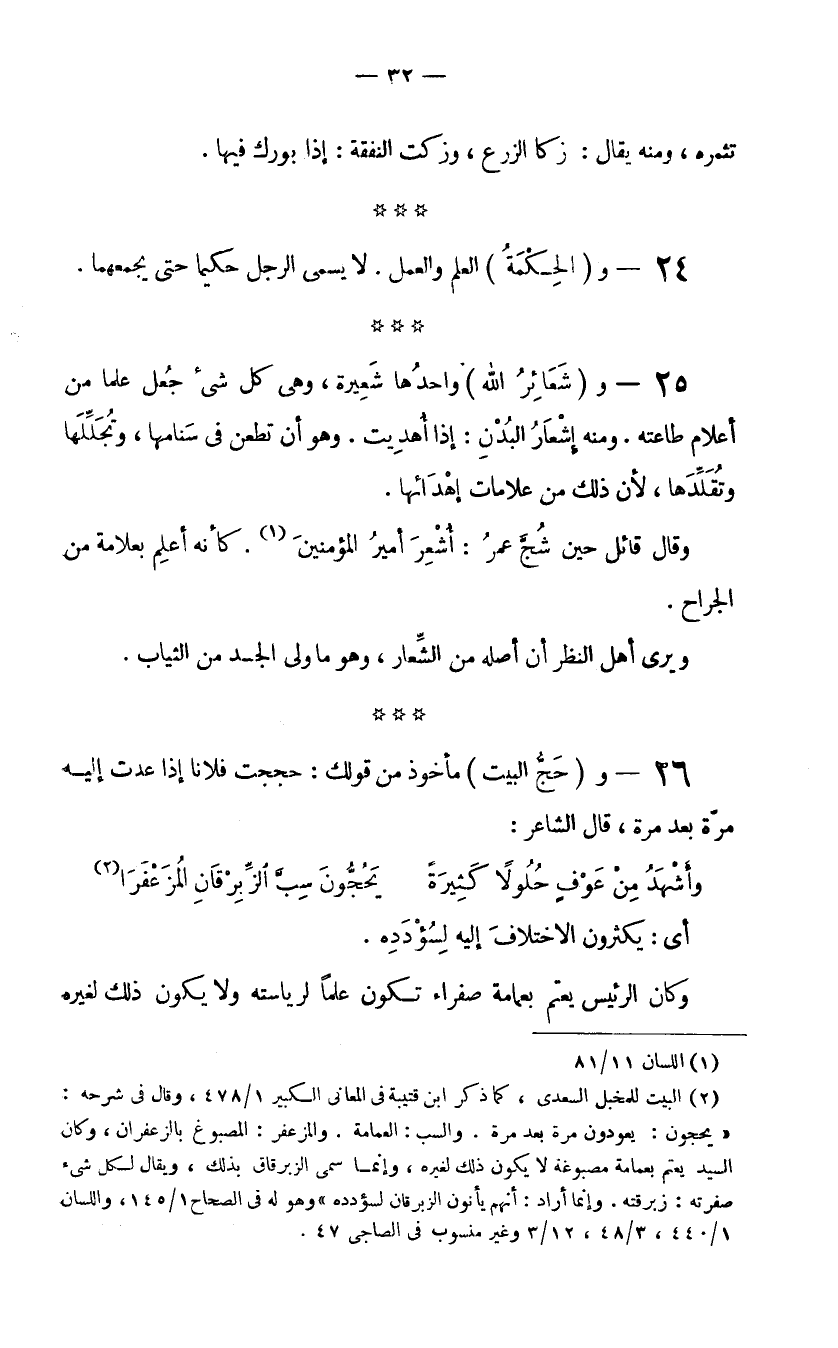 — ٣٢ —
تثمره ، ومنه يقال : زكا الزرع ، وزكت النفقة : إذا بورك فيها .
☆ ☆ ☆
٢٤ — و ( الحِكْمَةُ ) العلم والعمل . لا يسمى الرجل حكيما حتى يجمعهما .
☆ ☆ ☆
٢٥ — و ( شَعَائِرُ الله ) واحدُها شَعِيرة ، وهى كل شىء جُعل علما من
أعلام طاعته . ومنه إِشْعَارُ البُدْنِ : إذا أُهديت . وهو أن تطعن فى سَنامها ، وتُجَلِّلَها
وتُقَلِّدَها ، لأن ذلك من علامات إِهْدَائها .
وقال قائل حين شُجَّ عمرُ : أُشْعِرَ أميرُ المؤمنينَ (١) . كأنه أُعلِم بعلامة من
الجراح .
ويرى أهل النظر أن أصله من الشِّعار ، وهو ما ولى الجسد من الثياب .
☆ ☆ ☆
٢٦ — و ( حَجُّ البيت ) مأخوذ من قولك : حججت فلانا إذا عدت إليه
مرّة بعد مرة ، قال الشاعر :
وأَشْهَدُ مِنْ عَوْفٍ حُلُولًا كَثِيرَةً يَحُجُّونَ سِبَّ الزِّبِرْقَانِ المُزَعْفَرَا(٢)
أى : يكثرون الاختلافَ إليه لِسُؤْدَدِه .
وكان الرئيس يعتم بعمامة صفراء تكون علماً لرياسته ولا يكون ذلك لغيره
(١) اللسان ٨١/١١
(٢) البيت للمخبل السعدى ، كما ذكر ابن قتيبة فى المعانى الكبير ٤٧٨/١ ، وقال فى شرحه :
« يحجون : يعودون مرة بعد مرة . والسب : العمامة . والمزعفر : المصبوغ بالزعفران ، وكان
السيد يعتم بعمامة مصبوغة لا يكون ذلك لغيره ، وإنما سمى الزبرقاق بذلك ، ويقال لكل شىء
صفرته : زبرقته . وإنما أراد : أنهم يأنون الزبرقان لسؤدده » وهو له فى الصحاح ١٤٥/١ ، واللسان
٤٤٠/١ ، ٤٨/٣ ، ٣/١٢ وغير منسوب فى الصاجى ٤٧ .